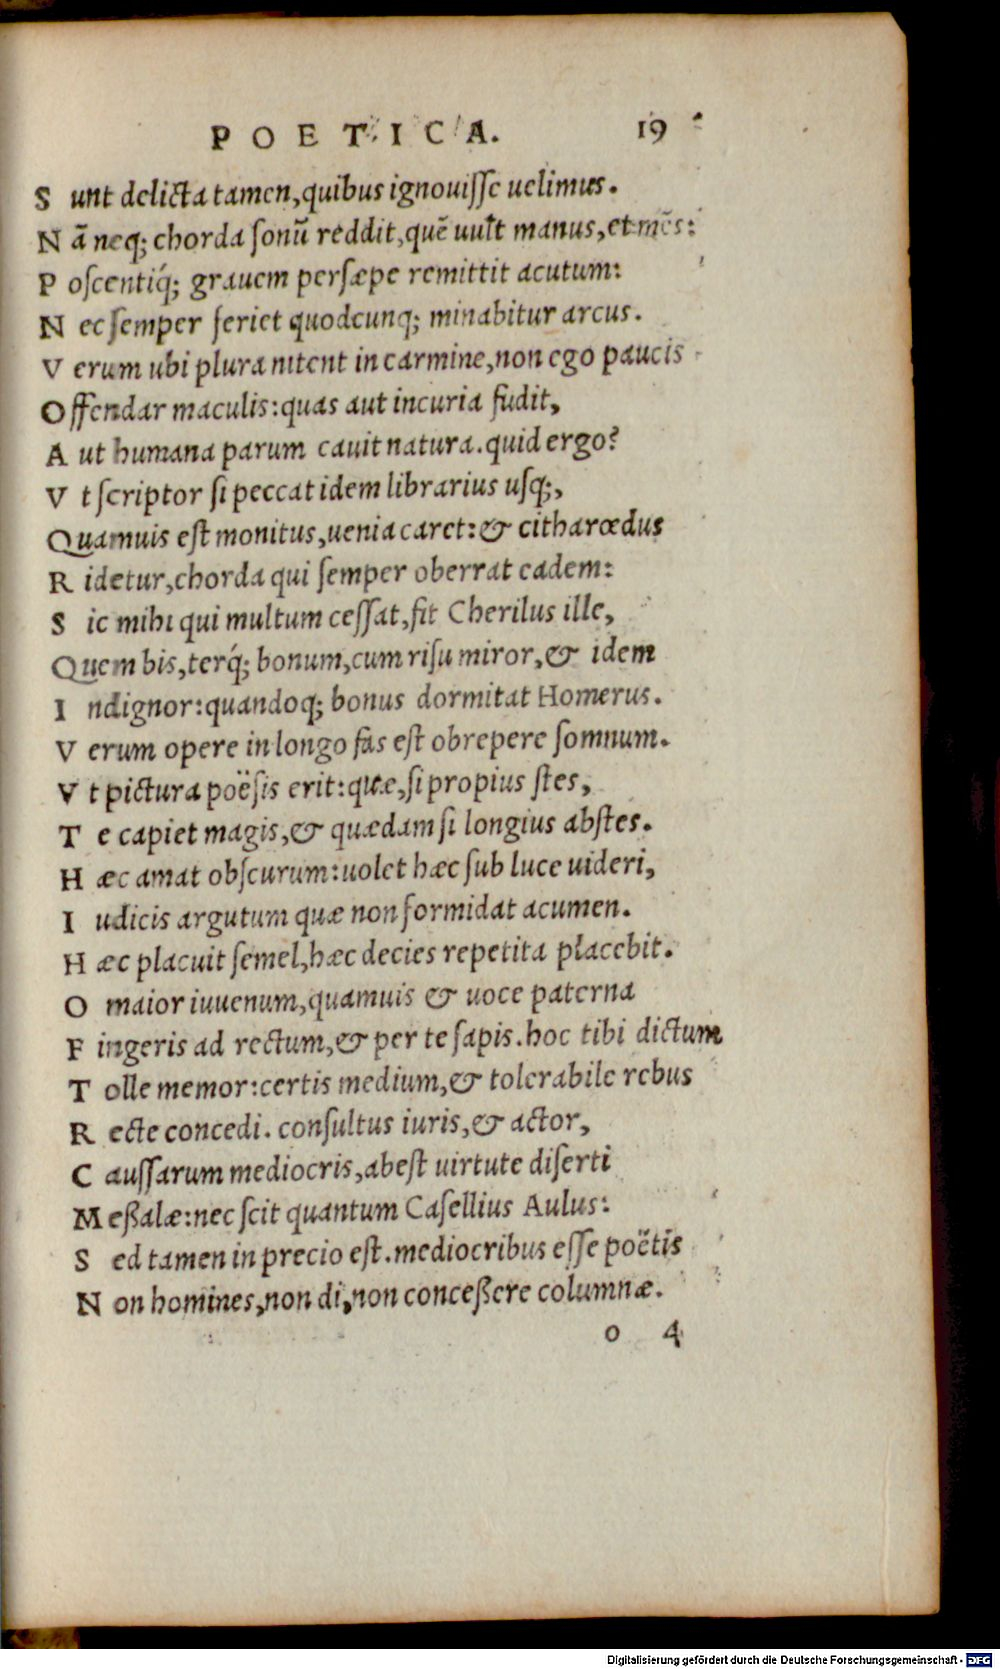 POETICA. 19
Sunt delicta tamen, quibus ignouisse uelimus.
Nã neq; chorda sonũ reddit, quẽ uult manus, et mẽs:
Poscentiq́; grauem persæpe remittit acutum:
Nec semper feriet quodcunq; minabitur arcus.
Verum ubi plura nitent in carmine, non ego paucis
Offendar maculis: quas aut incuria fudit,
Aut humana parum cauit natura. quid ergo?
Vt scriptor si peccat idem librarius usq;,
Quamuis est monitus, uenia caret: & citharœdus
Ridetur, chorda qui semper oberrat eadem:
Sic mihi qui multum cessat, fit Cherilus ille,
Quem bis, terq́; bonum, cum risu miror, & idem
Indignor: quandoq; bonus dormitat Homerus.
Verum opere in longo fas est obrepere somnum.
Vt pictura poësis erit: quæ, si propius stes,
Te capiet magis, & quædam si longius abstes.
Hæc amat obscurum: uolet hæc sub luce uideri,
Iudicis argutum quæ non formidat acumen.
Hæc placuit semel, hæc decies repetita placebit.
O maior iuuenum, quamuis & uoce paterna
Fingeris ad rectum, & per te sapis. hoc tibi dictum
Tolle memor: certis medium, & tolerabile rebus
Recte concedi. consultus iuris, & actor,
Caussarum mediocris, abest uirtute diserti
Meßalæ: nec scit quantum Casellius Aulus:
Sed tamen in precio est. mediocribus esse poëtis
Non homines, non di, non conceßere columnæ.
o 4
Digitalisierung gefördert durch die Deutsche Forschungsgemeinschaft - DFG